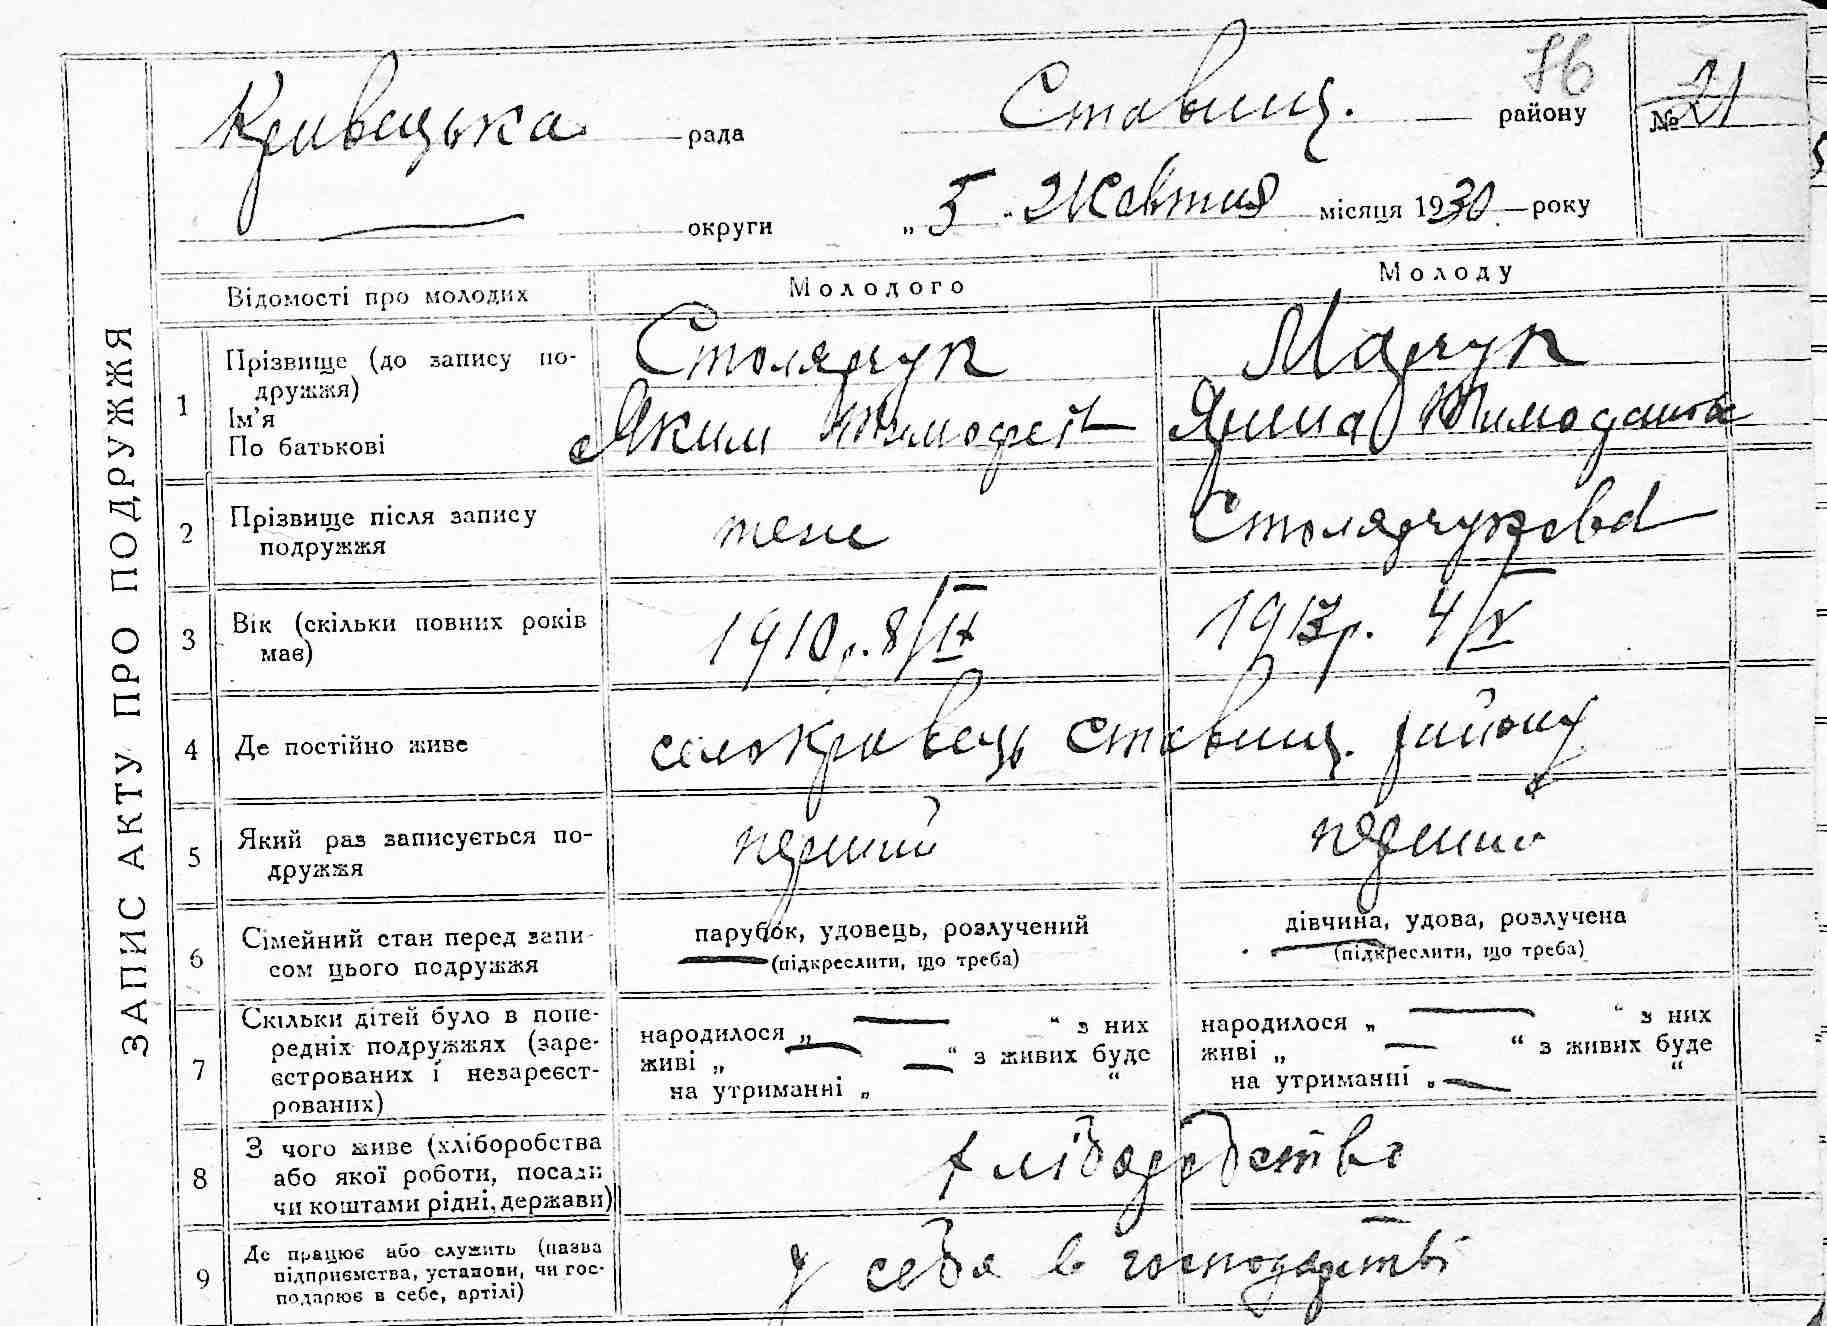 ЗАПИС АКТУ ПРО ПОДРУЖЖЯ
76
Кривецька рада Ставищ. району № 21
округи „ 5 “ Жовтня місяця 1930 року
Відомості про молодих Молодого Молоду
1 Прізвище (до запису по-
дружжя)
Ім'я
По батькові
Столярчук
Яким Тимофей
Марчук
Ярина
2 Прізвище після запису
подружжя
теж
Столярчукова
3 Вік (скільки повних років
має)
1910 р. 8/IX
1913 р. 4/V
4 Де постійно живе
село Кривець Ставищ. району
5 Який раз записується по-
дружжя
перший
перший
6 Сімейний стан перед запи-
сом цього подружжя
парубок, удовець, розлучений
(підкреслити, що треба)
дівчина, удова, розлучена
(підкреслити, що треба)
7 Скільки дітей було в попе-
редніх подружжях (заре-
єстрованих і незареєст-
рованих)
народилося „ — “ з них
живі „ — “ з живих буде
на утриманні „ — “
народилося „ — “ з них
живі „ — “ з живих буде
на утриманні „ — “
8 З чого живе (хліборобства
або якої роботи, посади
чи коштами рідні, держави)
хліборобство
9 Де працює або служить (назва
підприємства, установи, чи гос-
подарює в себе, артілі)
у себе в господарстві